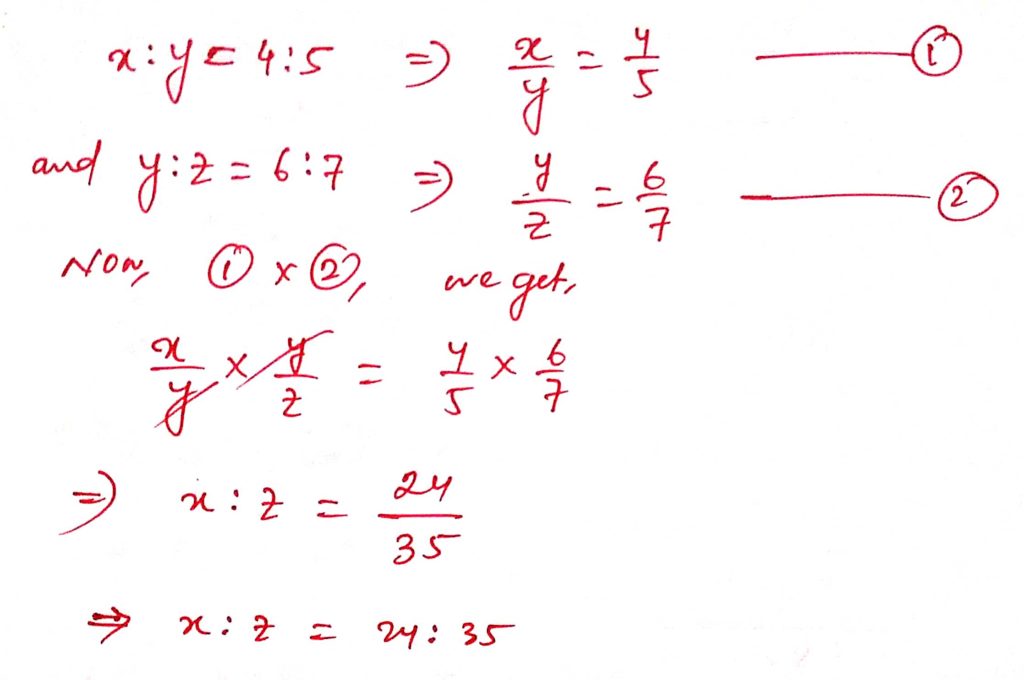 x : y = 4 : 5 ⇒ x/y = 4/5 —— ①
and y : z = 6 : 7 ⇒ y/z = 6/7 —— ②
Now, ① × ②, we get,
x/y × y/z = 4/5 × 6/7
⇒ x : z = 24/35
⇒ x : z = 24 : 35